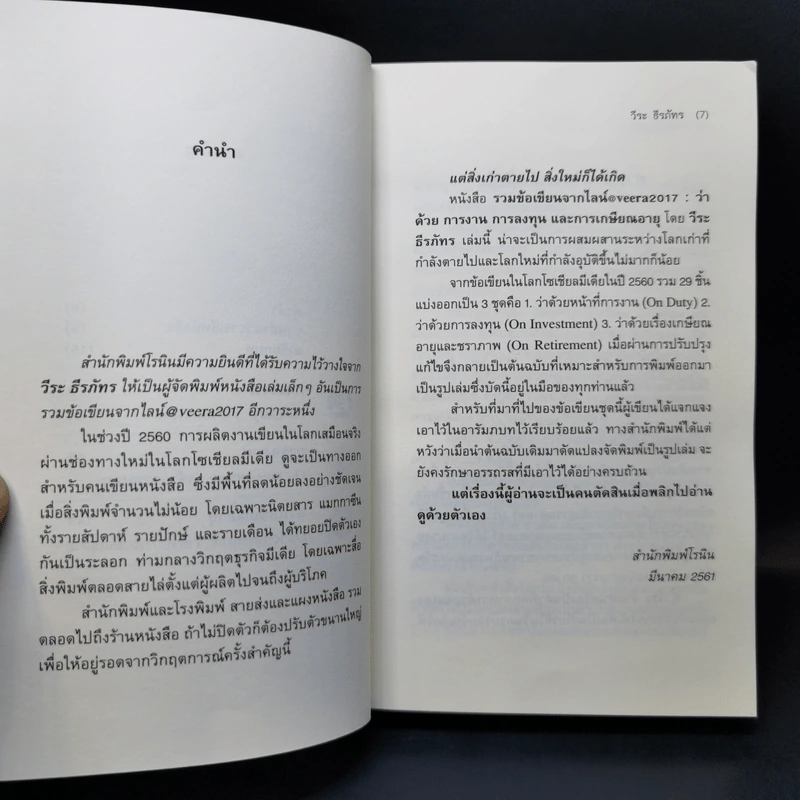 คำนำ
สำนักพิมพ์โรนินมีความยินดีที่ได้รับความไว้วางใจจาก
วีระ ธีรภัทร ให้เป็นผู้จัดพิมพ์หนังสือเล่มเล็กๆ อันเป็นการ
รวมข้อเขียนจากไลน์@veera2017 อีกวาระหนึ่ง
ในช่วงปี 2560 การผลิตงานเขียนในโลกเสมือนจริง
ผ่านช่องทางใหม่ในโลกโซเชียลมีเดีย ดูจะเป็นทางออก
สำหรับคนเขียนหนังสือ ซึ่งมีพื้นที่ลดน้อยลงอย่างชัดเจน
เมื่อสิ่งพิมพ์จำนวนไม่น้อย โดยเฉพาะนิตยสาร แมกกาซีน
ทั้งรายสัปดาห์ รายปักษ์ และรายเดือน ได้ทยอยปิดตัวเอง
กันเป็นระลอก ท่ามกลางวิกฤตธุรกิจมีเดีย โดยเฉพาะสื่อ
สิ่งพิมพ์ตลอดสายไล่ตั้งแต่ผู้ผลิตไปจนถึงผู้บริโภค
สำนักพิมพ์และโรงพิมพ์ สายส่งและแผงหนังสือ รวม
ตลอดไปถึงร้านหนังสือ ถ้าไม่ปิดตัวก็ต้องปรับตัวขนานใหญ่
เพื่อให้อยู่รอดจากวิกฤตการณ์ครั้งสำคัญนี้
วีระ ธีรภัทร (7)
แต่สิ่งเก่าตายไป สิ่งใหม่ก็ได้เกิด
หนังสือ รวมข้อเขียนจากไลน์@veera2017 : ว่า
ด้วย การงาน การลงทุน และการเกษียณอายุ โดย วีระ
ธีรภัทร เล่มนี้ น่าจะเป็นการผสมผสานระหว่างโลกเก่าที่
กำลังตายไปและโลกใหม่ที่กำลังอุบัติขึ้นไม่มากก็น้อย
จากข้อเขียนในโลกโซเชียลมีเดียในปี 2560 รวม 29 ชิ้น
แบ่งออกเป็น 3 ชุดคือ 1. ว่าด้วยหน้าที่การงาน (On Duty) 2.
ว่าด้วยการลงทุน (On Investment) 3. ว่าด้วยเรื่องเกษียณ
อายุและชราภาพ (On Retirement) เมื่อผ่านการปรับปรุง
แก้ไขจึงกลายเป็นต้นฉบับที่เหมาะสำหรับการพิมพ์ออกมา
เป็นรูปเล่มซึ่งบัดนี้อยู่ในมือของทุกท่านแล้ว
สำหรับที่มาที่ไปของข้อเขียนชุดนี้ผู้เขียนได้แจกแจง
เอาไว้ในอารัมภบทไว้เรียบร้อยแล้ว ทางสำนักพิมพ์ได้แต่
หวังว่าเมื่อนำต้นฉบับเดิมมาดัดแปลงจัดพิมพ์เป็นรูปเล่ม จะ
ยังคงรักษาอรรถรสที่มีเอาไว้ได้อย่างครบถ้วน
แต่เรื่องนี้ผู้อ่านจะเป็นคนตัดสินเมื่อพลิกไปอ่าน
ดูด้วยตัวเอง
สำนักพิมพ์โรนิน
มีนาคม 2561